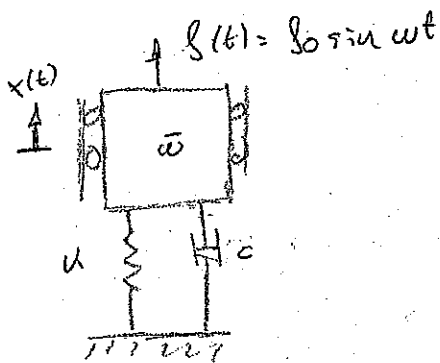 f(t) = f0 sin ωt
x(t)
w̄
k
c